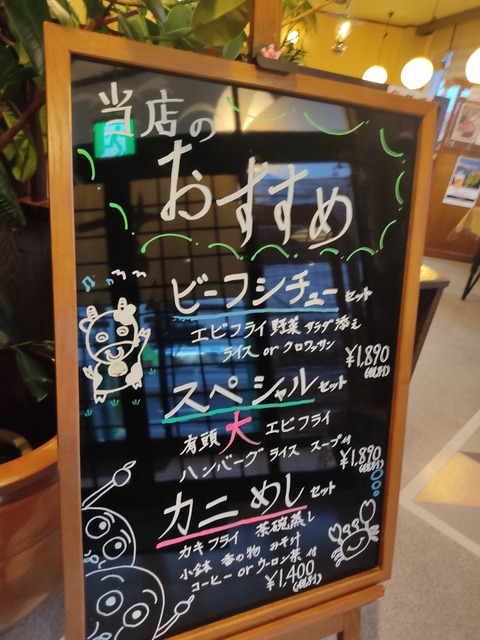 当店の
おすすめ
ビーフシチューセット
エビフライ 野菜サラダ添え
ライス or クロワッサン
¥1,890
(税別)
スペシャルセット
有頭大エビフライ
ハンバーグ ライス スープ付
¥1,890
(税別)
カニめしセット
カキフライ 茶碗蒸し
小鉢 香の物 みそ汁
コーヒー or ウーロン茶 付
¥1,400
(税別)